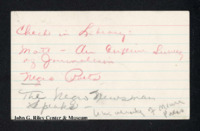 Check in Library:
Mott - An
of Journalism
Negro Poets
The Negro Newsman
Speaks -
University of
Press
John G. Riley Center & Museum